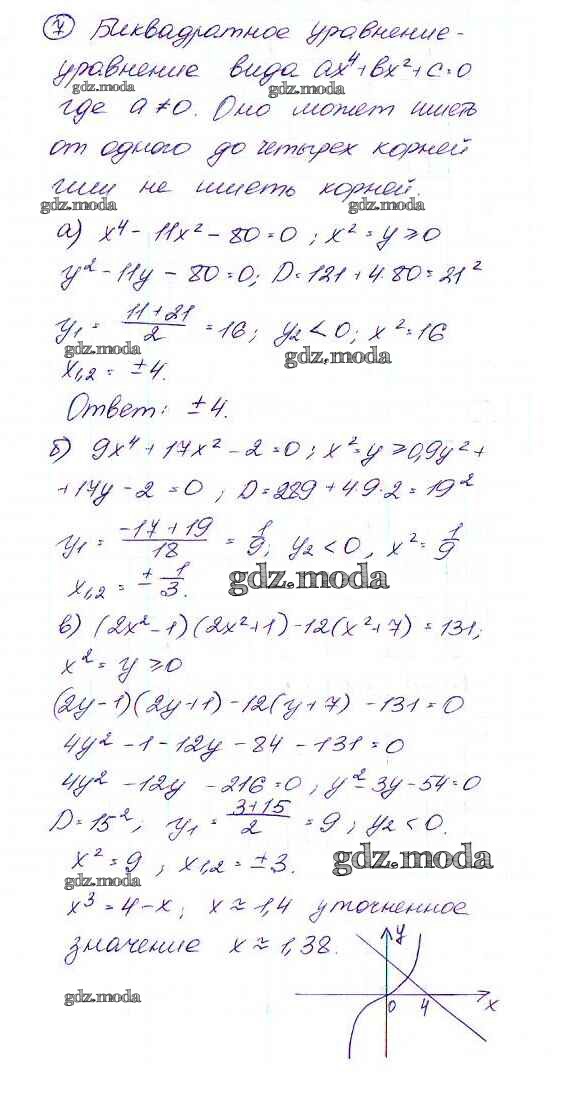 ⑦ Биквадратное уравнение-
уравнение вида ax⁴+bx²+c=0
gdz.moda gdz.moda
где a≠0. Оно может иметь
от одного до четырех корней
или не иметь корней.
gdz.moda gdz.moda
а) x⁴-11x²-80=0; x²=y≥0
y²-11y-80=0; D=121+4·80=21²
y₁= (11+21)/2 =16; y₂<0; x²=16
gdz.moda gdz.moda
x₁,₂= ±4.
Ответ: ±4.
б) 9x⁴+17x²-2=0; x²=y≥0, 9y²+
+17y-2=0; D=289+4·9·2=19²
y₁= (-17+19)/18 = 1/9; y₂<0, x²= 1/9
x₁,₂= ± 1/3. gdz.moda
в) (2x²-1)(2x²+1)-12(x²+7)=131;
x²=y≥0
(2y-1)(2y+1)-12(y+7)-131=0
4y²-1-12y-84-131=0
4y²-12y-216=0; y²-3y-54=0
D=15²; y₁= (3+15)/2 =9; y₂<0.
x²=9; x₁,₂=±3. gdz.moda
gdz.moda
x³=4-x; x≈1,4 уточненное
значение x≈1,38.
y
gdz.moda
0 4 x